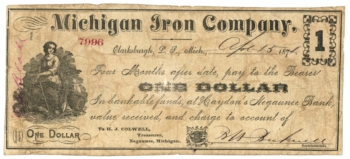 Michigan Iron Company.
1
7996
Clarksburgh, L. P., Mich., Apl 15 187
Four Months after date, pay to the Bearer
ONE DOLLAR
In bankable funds, at Haydon's Negaunee Bank,
value received, and charge to account of
To H. J. COLWELL,
Treasurer,
Negaunee, Michigan.
ONE DOLLAR